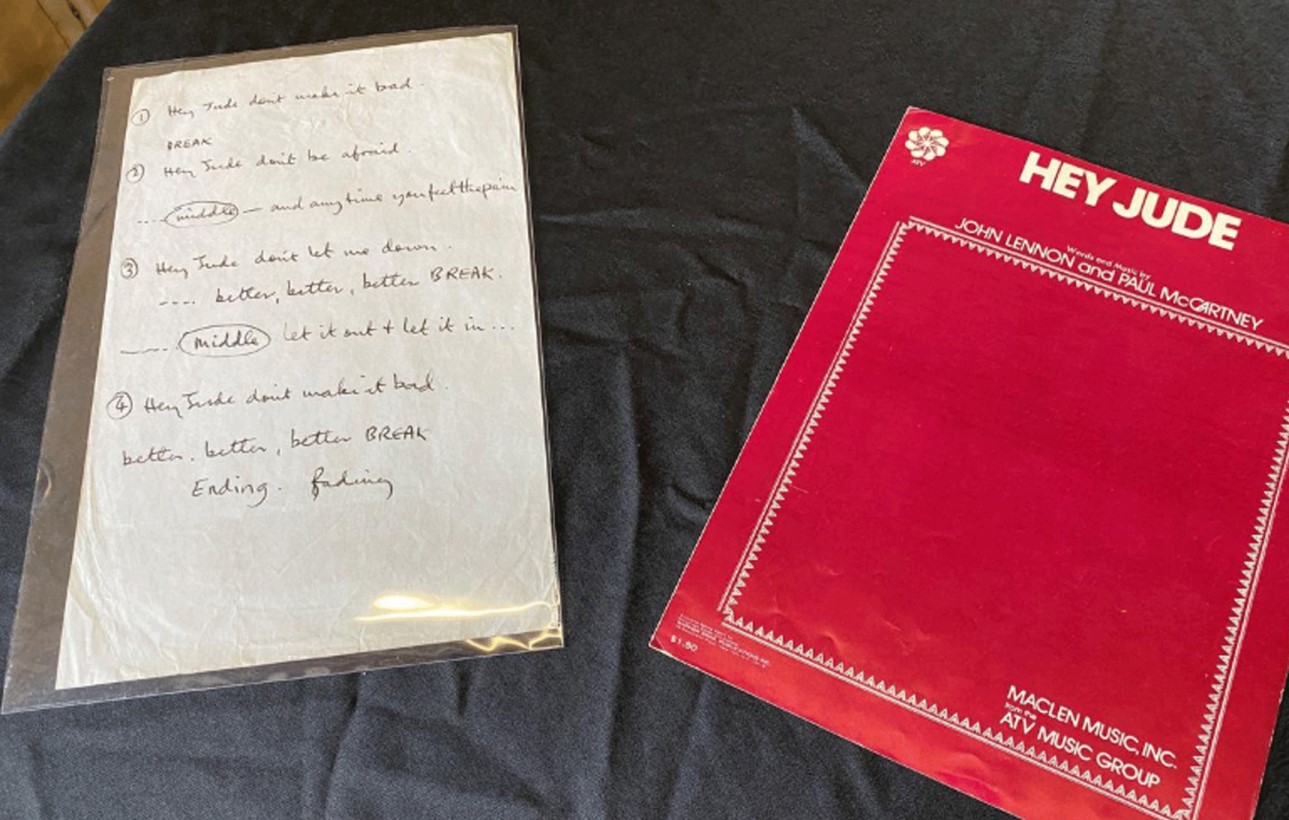 ① Hey Jude don't make it bad.
BREAK
② Hey Jude don't be afraid.
.... middle — and anytime you feel the pain
③ Hey Jude don't let me down.
.... better, better, better BREAK.
..... middle let it out + let it in ...
④ Hey Jude don't make it bad.
better. better, better BREAK
Ending. fading
ATV
HEY JUDE
Words and Music by
JOHN LENNON and PAUL McCARTNEY
$1.50
MACLEN MUSIC, INC.
from the
ATV MUSIC GROUP